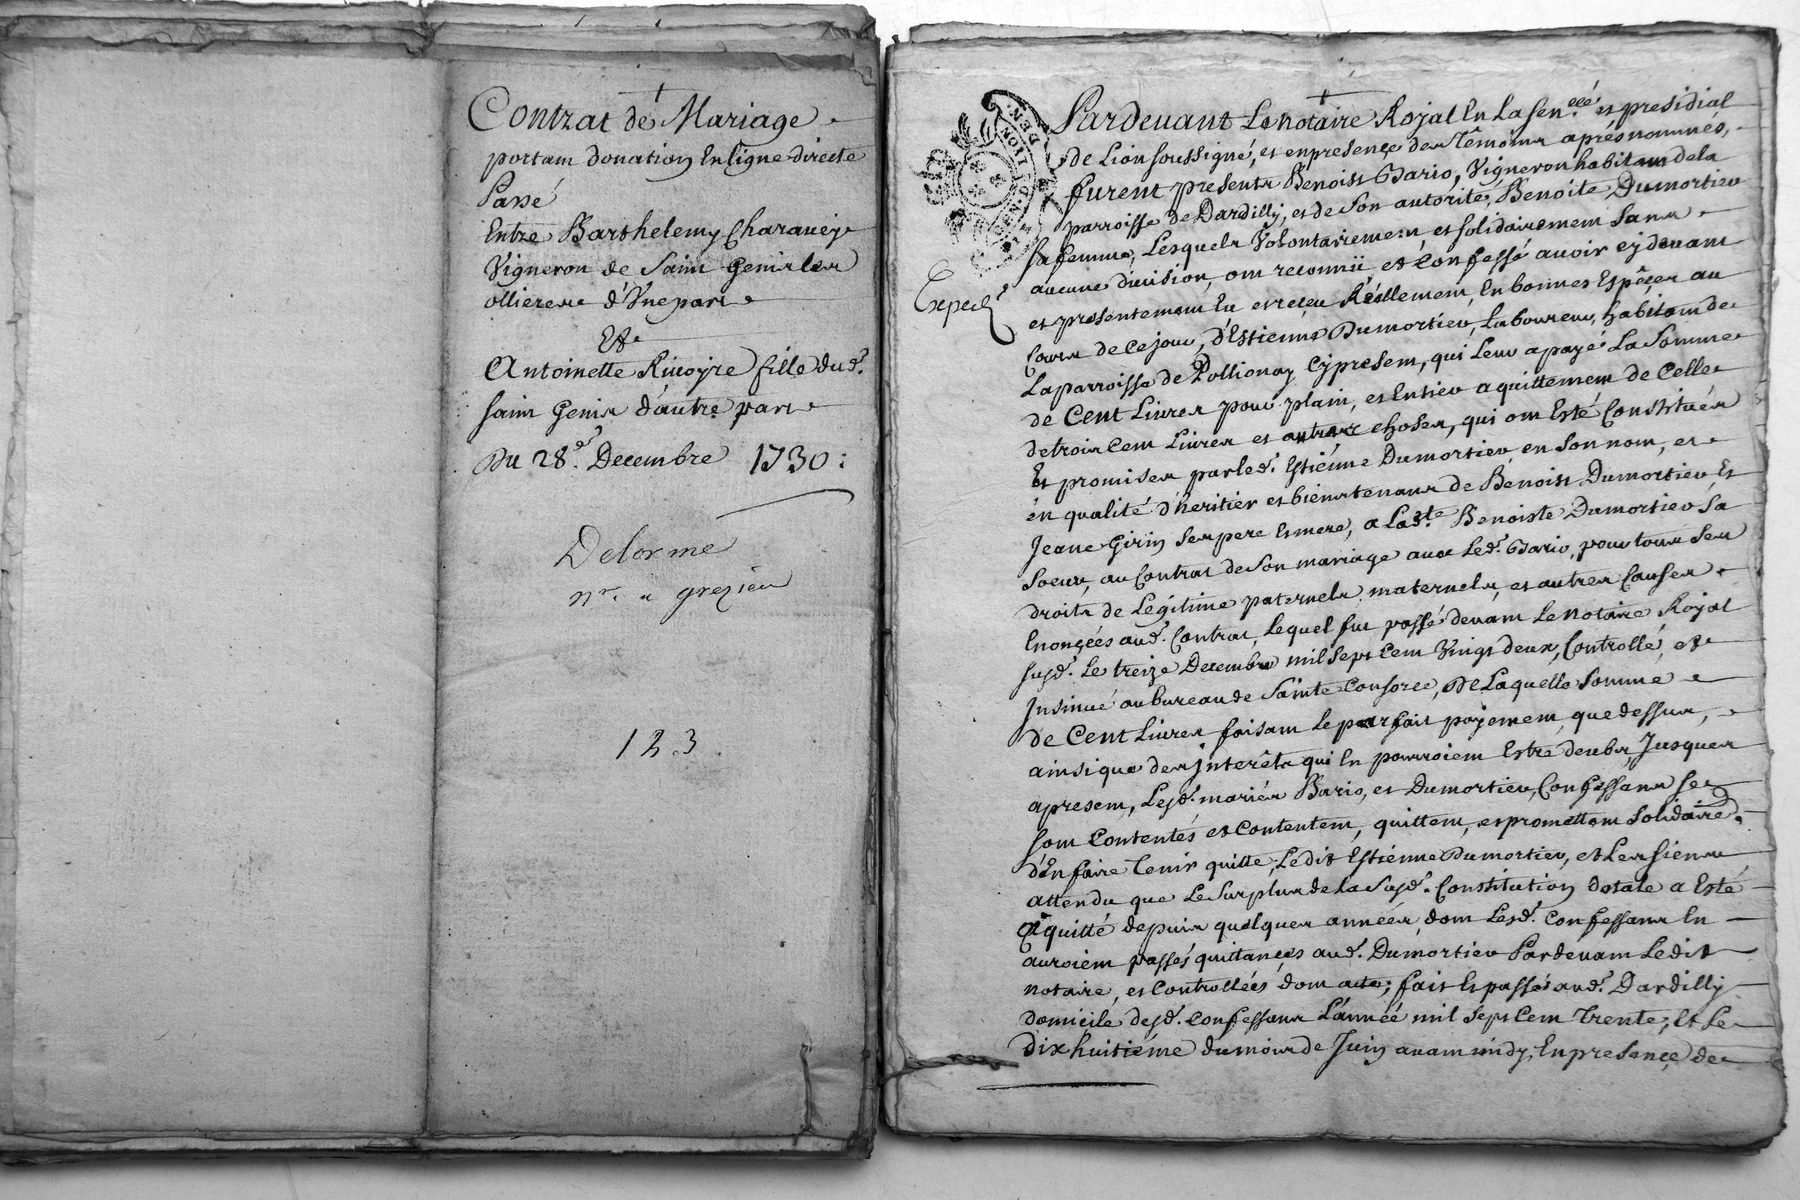 Contrat de Mariage
portant donation en ligne directe
Passé
Entre Barthelemy Charavey
Vigneron de Saint Genis les
ollieres d'Une part
Et
Antoinette Rivoyre fille dud.
saint Genis d'autre part
Du 28e. Decembre 1730:
Delorme
nre. a grezieu
123
Pardevant Le notaire Royal En La senéé. et presidial
de Lion soussigné, et en presence des Témoins aprés nommés,
furent presents Benoist Bario, Vigneron habitant de la
parroisse de Dardilly, et de Son autorité, Benoite Dumortier
sa femme, Lesquels Volontairement et solidairement sans
aucune division, ont reconnü et confessé avoir cy devant
et presentement Eu et reçeu Réellement, En bonnes Espêces au
Expedé
Cours de ce jour, d'Estienne Dumortier, Laboureur, habitant de
La parroisse de Pollionay Cy present, qui Leur a payé La Somme
de Cent Livres pour plain, et Entier aquittement de Celle
de trois Cent Livres et autres choses, qui ont Esté Constitués
Et promises par led. Estienne Dumortier en son nom, et
en qualité d'heritier et bienstenans de Benoist Dumortier Et
Jeane Girin ses pere Et mere, a Lad.te Benoiste Dumortier sa
Soeur, au Contrat de Son mariage avec Led. Bario, pour tous ses
droits de Légitime paternels maternels, et autres Causes
Enonçées aud. Contrat, Lequel fut passé devant Le Notaire Royal
susd. Le treize Decembre mil Sept Cent Vingt deux, Controllé, et
Insinué au bureau de Sainte Consorce, De Laquelle Somme
de Cent Livres faisant Le parfait payement que dessus,
ainsique des interêts qui En pourroient Estre deubs, Jusques
a present, Lesd. mariés Bario, et Dumortier, Confessans se
sont Contentés et Contentent, quittent, et promettent Solidaire.
d'En faire tenir quitte, Ledit Estienne Dumortier, et Les siens
attendu que Le Surplus de la Susd. Constitution dotale a Esté
aquitté depuis quelques années, dont Lesd. Confessans En
auroient passés quittances aud. Dumortier Pardevant Ledit
notaire, et Controllées, dont acte; fait Et passé aud. Dardilly
domicile desd. confessans L'année mil Sept Cent Trente, Et Le
dixhuitiéme du mois de Juin avant midy, En presence de